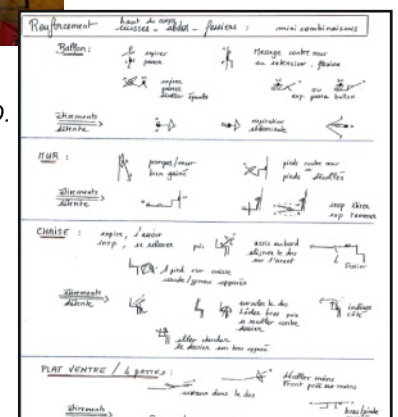 Renforcement haut du corps cuisses - abdos - fessiers : mini combinaisons
Ballon : expirer
passer
Massage contre mur
en extension - flexion
expirer
passer
décoller épaule
ou
exp. passer ballon
étirements
détente
respiration
abdominale
MUR :
pompes/mur
bien gainé
pieds contre mur
pieds décollés
étirements
détente
insp étirer
exp ramener
CHAISE : expire, s'asseoir
insp, se relever puis
assis au bord
aligner le dos
sur l'avant
1 pied sur cuisse
coude/genou opposés
étirements
détente
enrouler le dos
lâcher bras puis
se reculer contre
dossier
incliner
côté
aller chercher
le dossier
bras opposé
PLAT VENTRE / 4 PATTES :
décoller mains
Front posé sur mains
dans le dos
étirements
bras/jambe